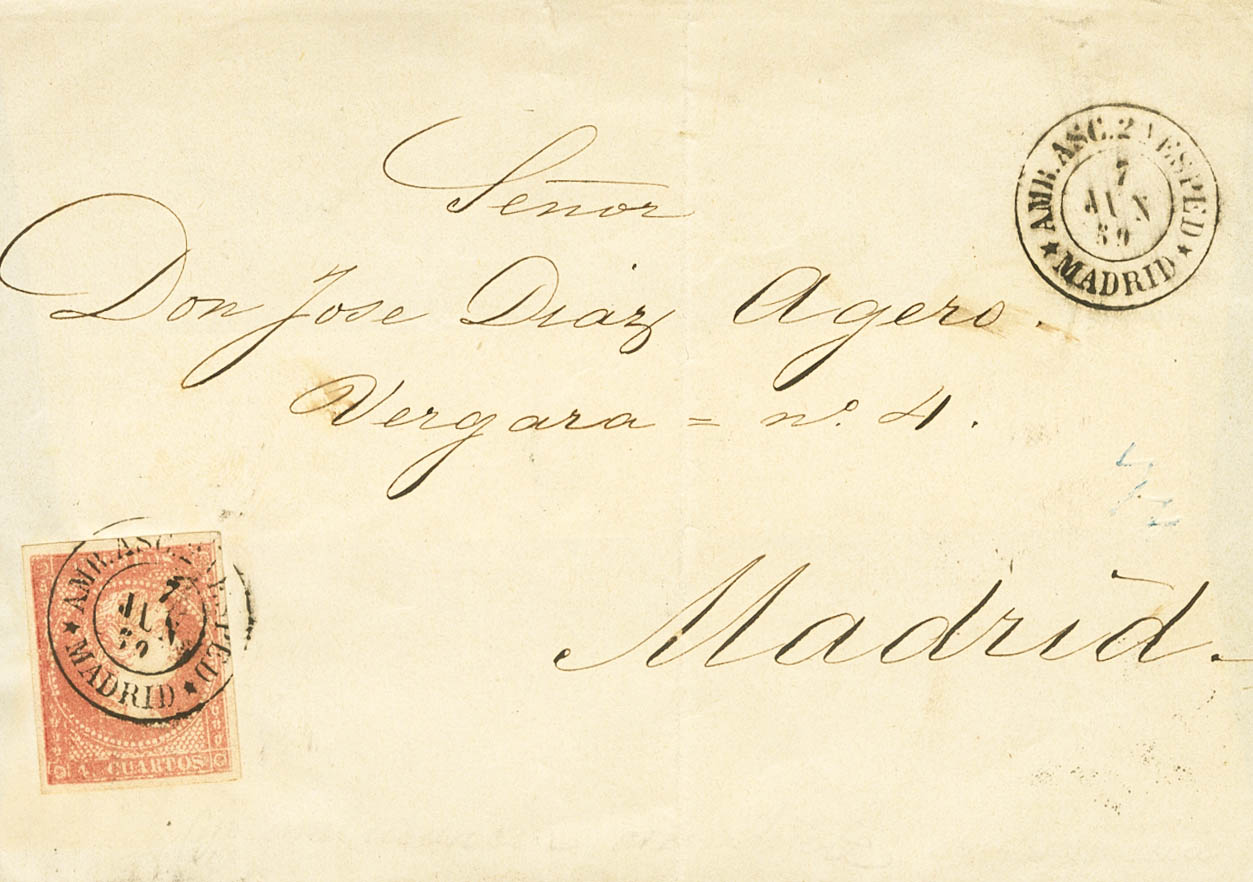 Señor
Don Jose Diaz Agero.
Vergara = nº. 4.
Madrid.
AMB.ASC.2 ESPED
7
JUN
59
★ MADRID ★
AMB.ASC.2 ESPED
7
JUN
59
★ MADRID ★
4 CUARTOS